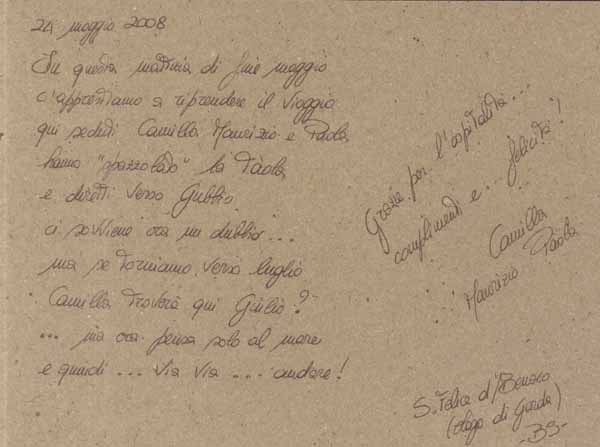 24 maggio 2008
In questa mattina di fine maggio
ci apprestiamo a riprendere il viaggio
qui seduti Camilla Maurizio e Paola
hanno "spazzolato" la tàola
e diretti verso Gubbio
ci sovviene ora un dubbio...
ma se torniamo verso luglio
Camilla troverà qui Giulio?
... ma ora pensa solo al mare
e quindi ... via via ... andare!
Grazie per l'ospitalità...
complimenti e ... felicità!
Camilla
Maurizio Paola
S. Felice d/Benaco
(lago di Garda)
-BS-